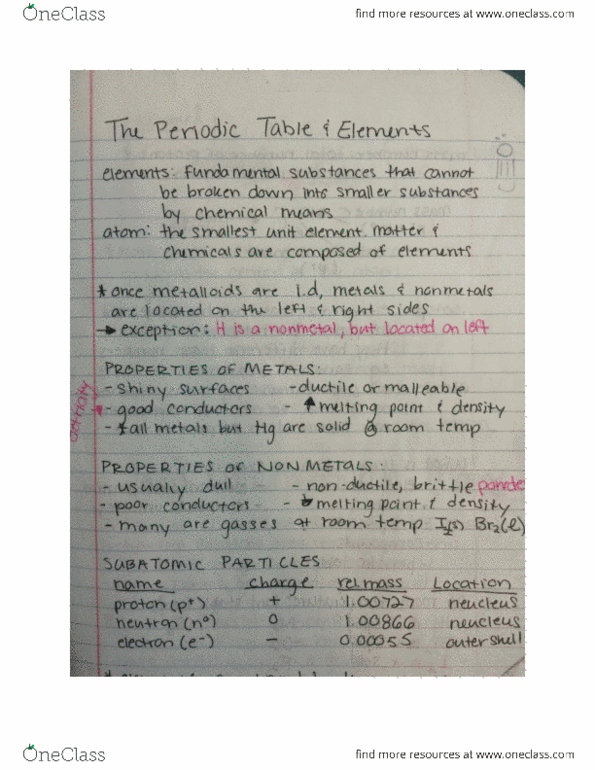 OneClass
find more resources at www.oneclass.com
The Periodic Table & Elements
elements: fundamental substances that cannot
be broken down into smaller substances
by chemical means
atom: the smallest unit element. matter &
chemicals are composed of elements
* once metalloids are i.d, metals & nonmetals
are located on the left & right sides
→ exception: H is a nonmetal, but located on left
PROPERTIES OF METALS:
- shiny surfaces - ductile or malleable
- good conductors - ↑ melting point & density
- all metals but Hg are solid @ room temp
PROPERTIES OF NON METALS:
- usually dull - non-ductile, brittle
- poor conductors - ↓ melting point & density
- many are gasses at room temp I₂(s) Br₂(l)
SUBATOMIC PARTICLES
name charge rel.mass Location
proton (p⁺) + 1.00727 neucleus
neutron (n⁰) 0 1.00866 neucleus
electron (e⁻) − 0.00055 outer shell
OneClass
find more resources at www.oneclass.com